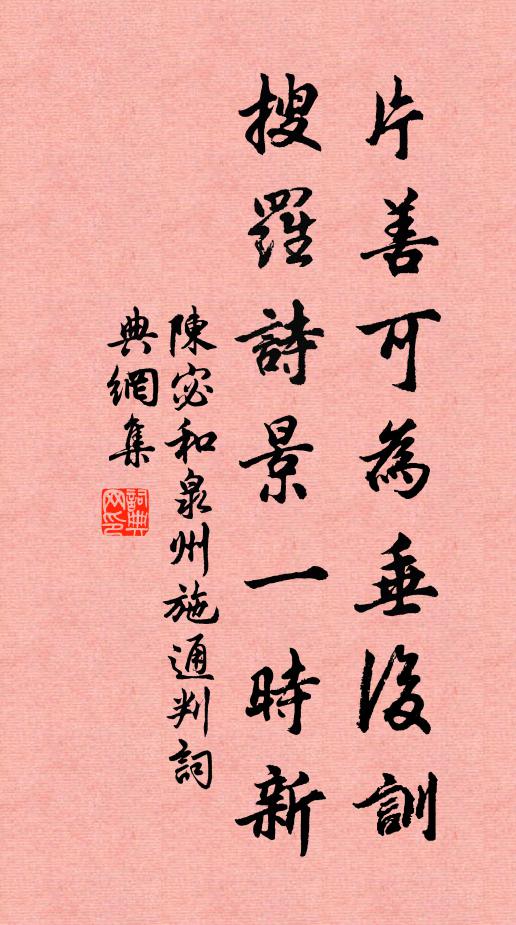 片善可為垂後訓
搜羅詩景一時新
陳宓和泉州施通判詞
典網集
詞典網印